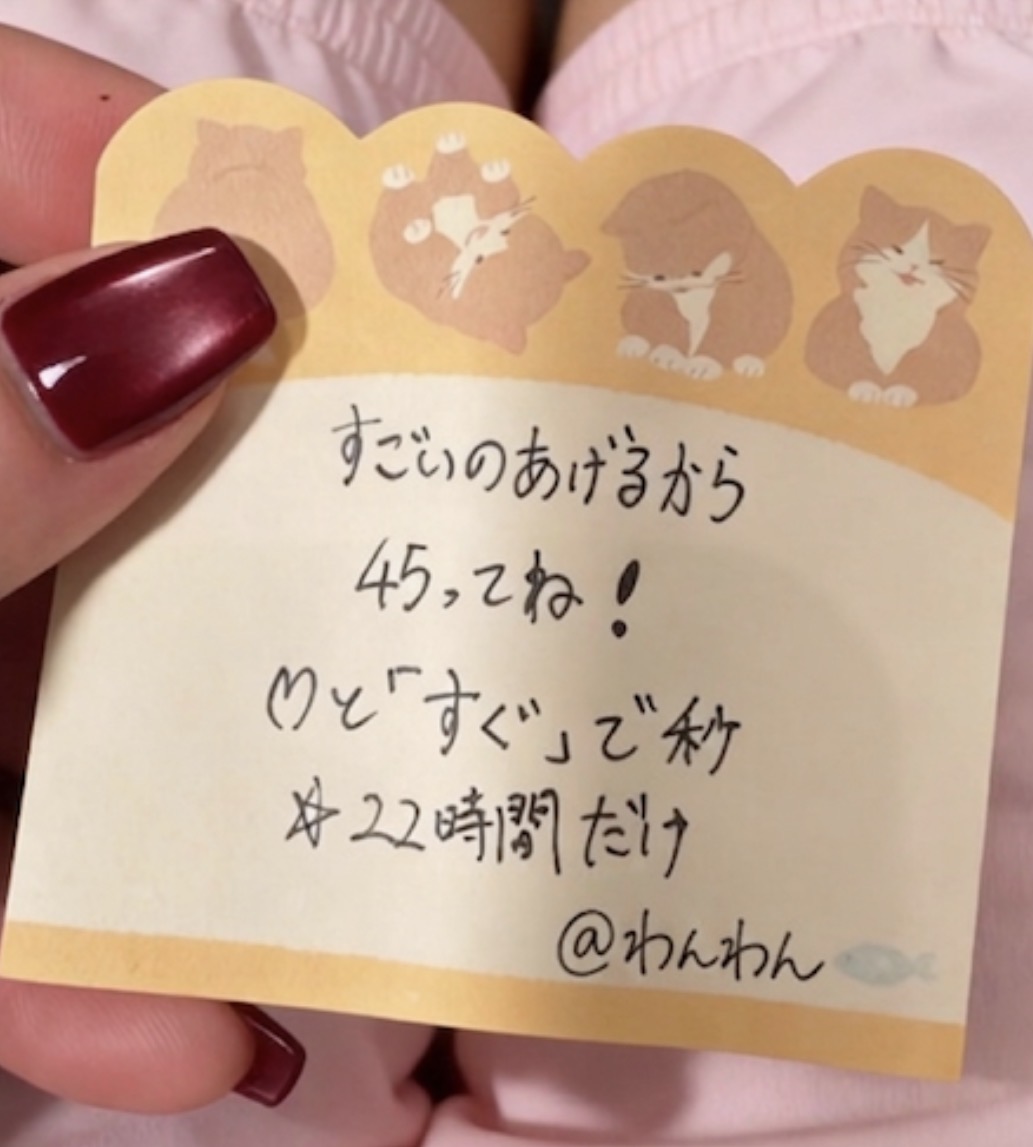 すごいのあげるから
45ってね!
♡と「すぐ」で秒
☆22時間だけ
@わんわん